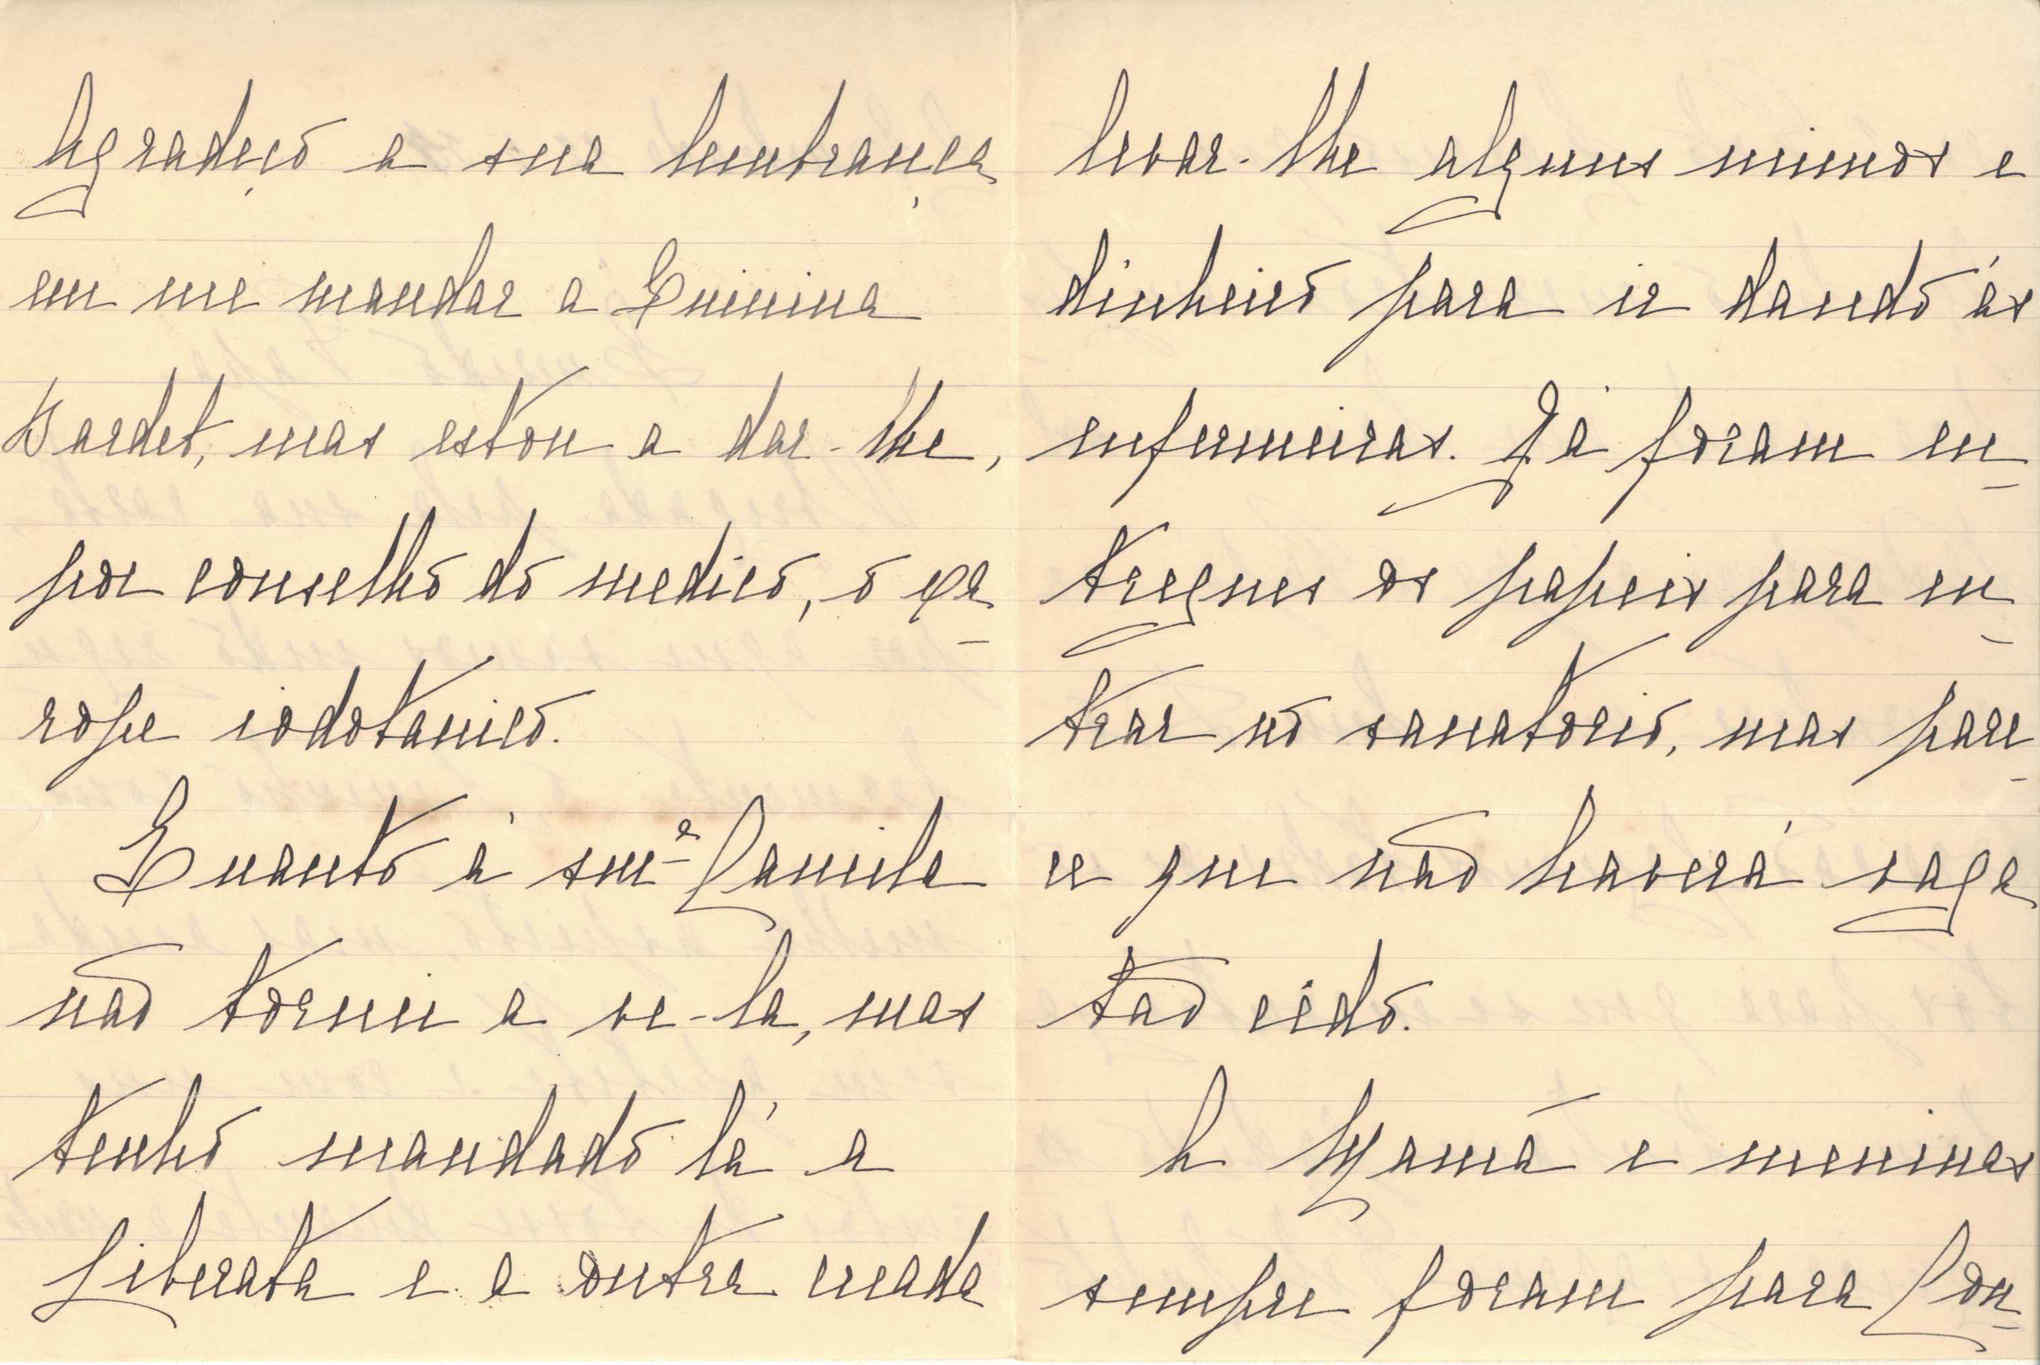 Agradeço a sua lembrança
em me mandar a Quinina
Bardet, mas estou a dar-lhe,
por conselho do medico, o xa-
rope iodotanico.
Quanto á snrª Camila
não tornei a ve-la, mas
tenho mandado lá a
Liberata e a outra creada
levar-lhe alguns mimos e
dinheiro para ir dando ás
enfermeiras. Já foram en-
tregues os papeis para en-
trar no sanatorio, mas pare-
ce que não haverá vaga
tão cêdo.
A Mamã e meninas
sempre foram para Cou-